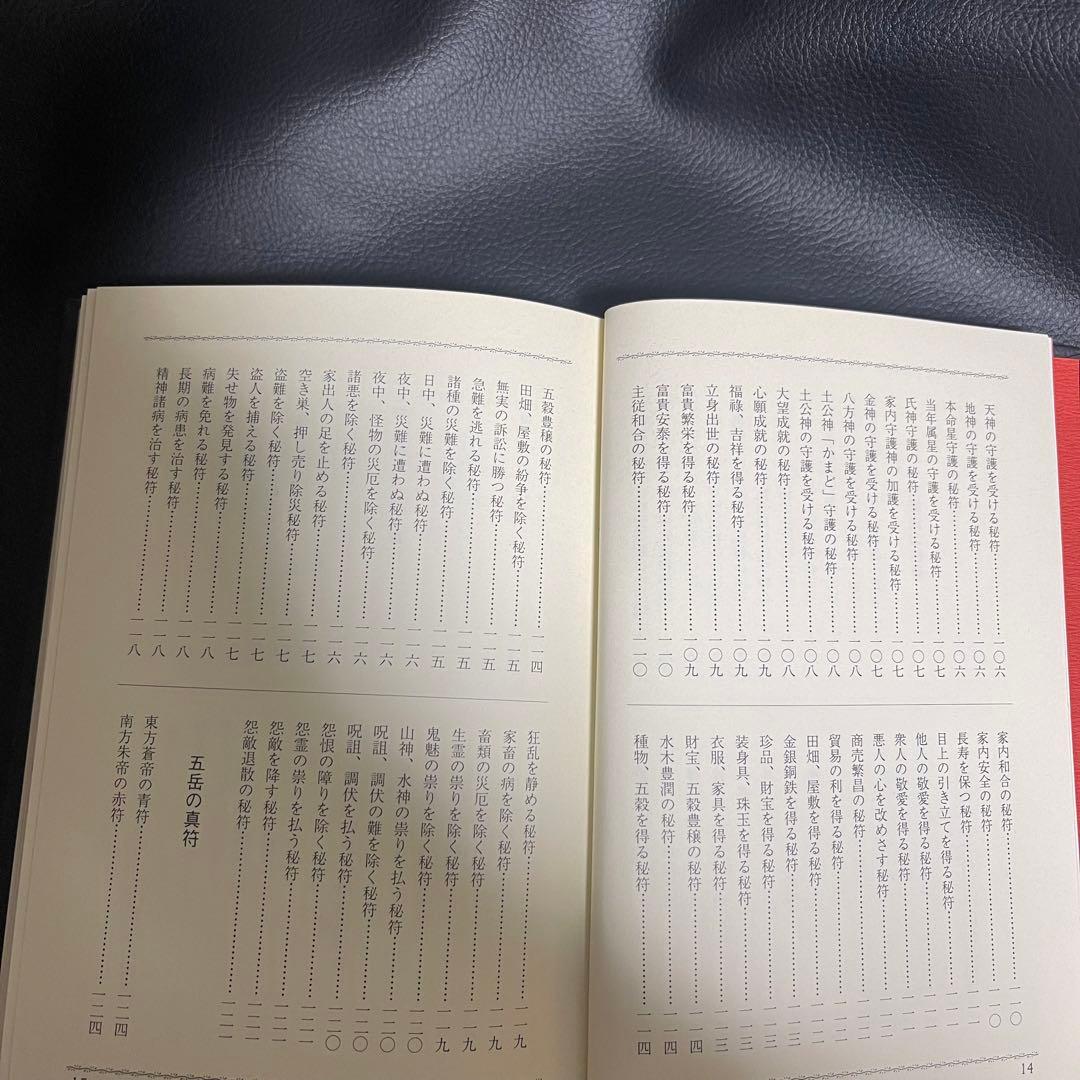 天神の守護を受ける秘符……一〇六
地神の守護を受ける秘符……一〇六
本命星守護の秘符……一〇六
当年属星の守護を受ける秘符……一〇七
氏神守護の秘符……一〇七
家内守護神の加護を受ける秘符……一〇七
金神の守護を受ける秘符……一〇七
八方神の守護を受ける秘符……一〇八
土公神「かまど」守護の秘符……一〇八
土公神の守護を受ける秘符……一〇八
大望成就の秘符……一〇八
心願成就の秘符……一〇九
福祿、吉祥を得る秘符……一〇九
立身出世の秘符……一〇九
富貴繁栄を得る秘符……一〇九
富貴安泰を得る秘符……一一〇
主従和合の秘符……一一〇
家内和合の秘符……一一〇
家内安全の秘符……一一〇
長寿を保つ秘符……一一一
目上の引き立てを得る秘符……一一一
他人の敬愛を得る秘符……一一一
衆人の敬愛を得る秘符……一一一
悪人の心を改めさす秘符……一一二
商売繁昌の秘符……一一二
貿易の利を得る秘符……一一二
田畑、屋敷を得る秘符……一一二
金銀銅鉄を得る秘符……一一三
珍品、財宝を得る秘符……一一三
装身具、珠玉を得る秘符……一一三
衣服、家具を得る秘符……一一三
財宝、五穀豊穣の秘符……一一四
水木豊潤の秘符……一一四
種物、五穀を得る秘符……一一四
14
五穀豊穣の秘符……一一四
田畑、屋敷の紛争を除く秘符……一一五
無実の訴訟に勝つ秘符……一一五
急難を逃れる秘符……一一五
諸種の災難を除く秘符……一一五
日中、災難に遭わぬ秘符……一一六
夜中、災難に遭わぬ秘符……一一六
夜中、怪物の災厄を除く秘符……一一六
諸悪を除く秘符……一一六
家出人の足を止める秘符……一一六
空き巣、押し売り除災秘符……一一七
盗難を除く秘符……一一七
盗人を捕える秘符……一一七
失せ物を発見する秘符……一一七
病難を免れる秘符……一一八
長期の病患を治す秘符……一一八
精神諸病を治す秘符……一一八
狂乱を静める秘符……一一九
家畜の病を除く秘符……一一九
畜類の災厄を除く秘符……一一九
生霊の祟りを除く秘符……一一九
鬼魅の祟りを除く秘符……一一九
山神、水神の祟りを払う秘符……一二〇
呪詛、調伏の難を除く秘符……一二〇
呪詛、調伏を払う秘符……一二〇
怨恨の障りを除く秘符……一二〇
怨霊の祟りを払う秘符……一二一
怨敵を降す秘符……一二一
怨敵退散の秘符……一二一
五岳の真符
東方蒼帝の青符……一二四
南方朱帝の赤符……一二四